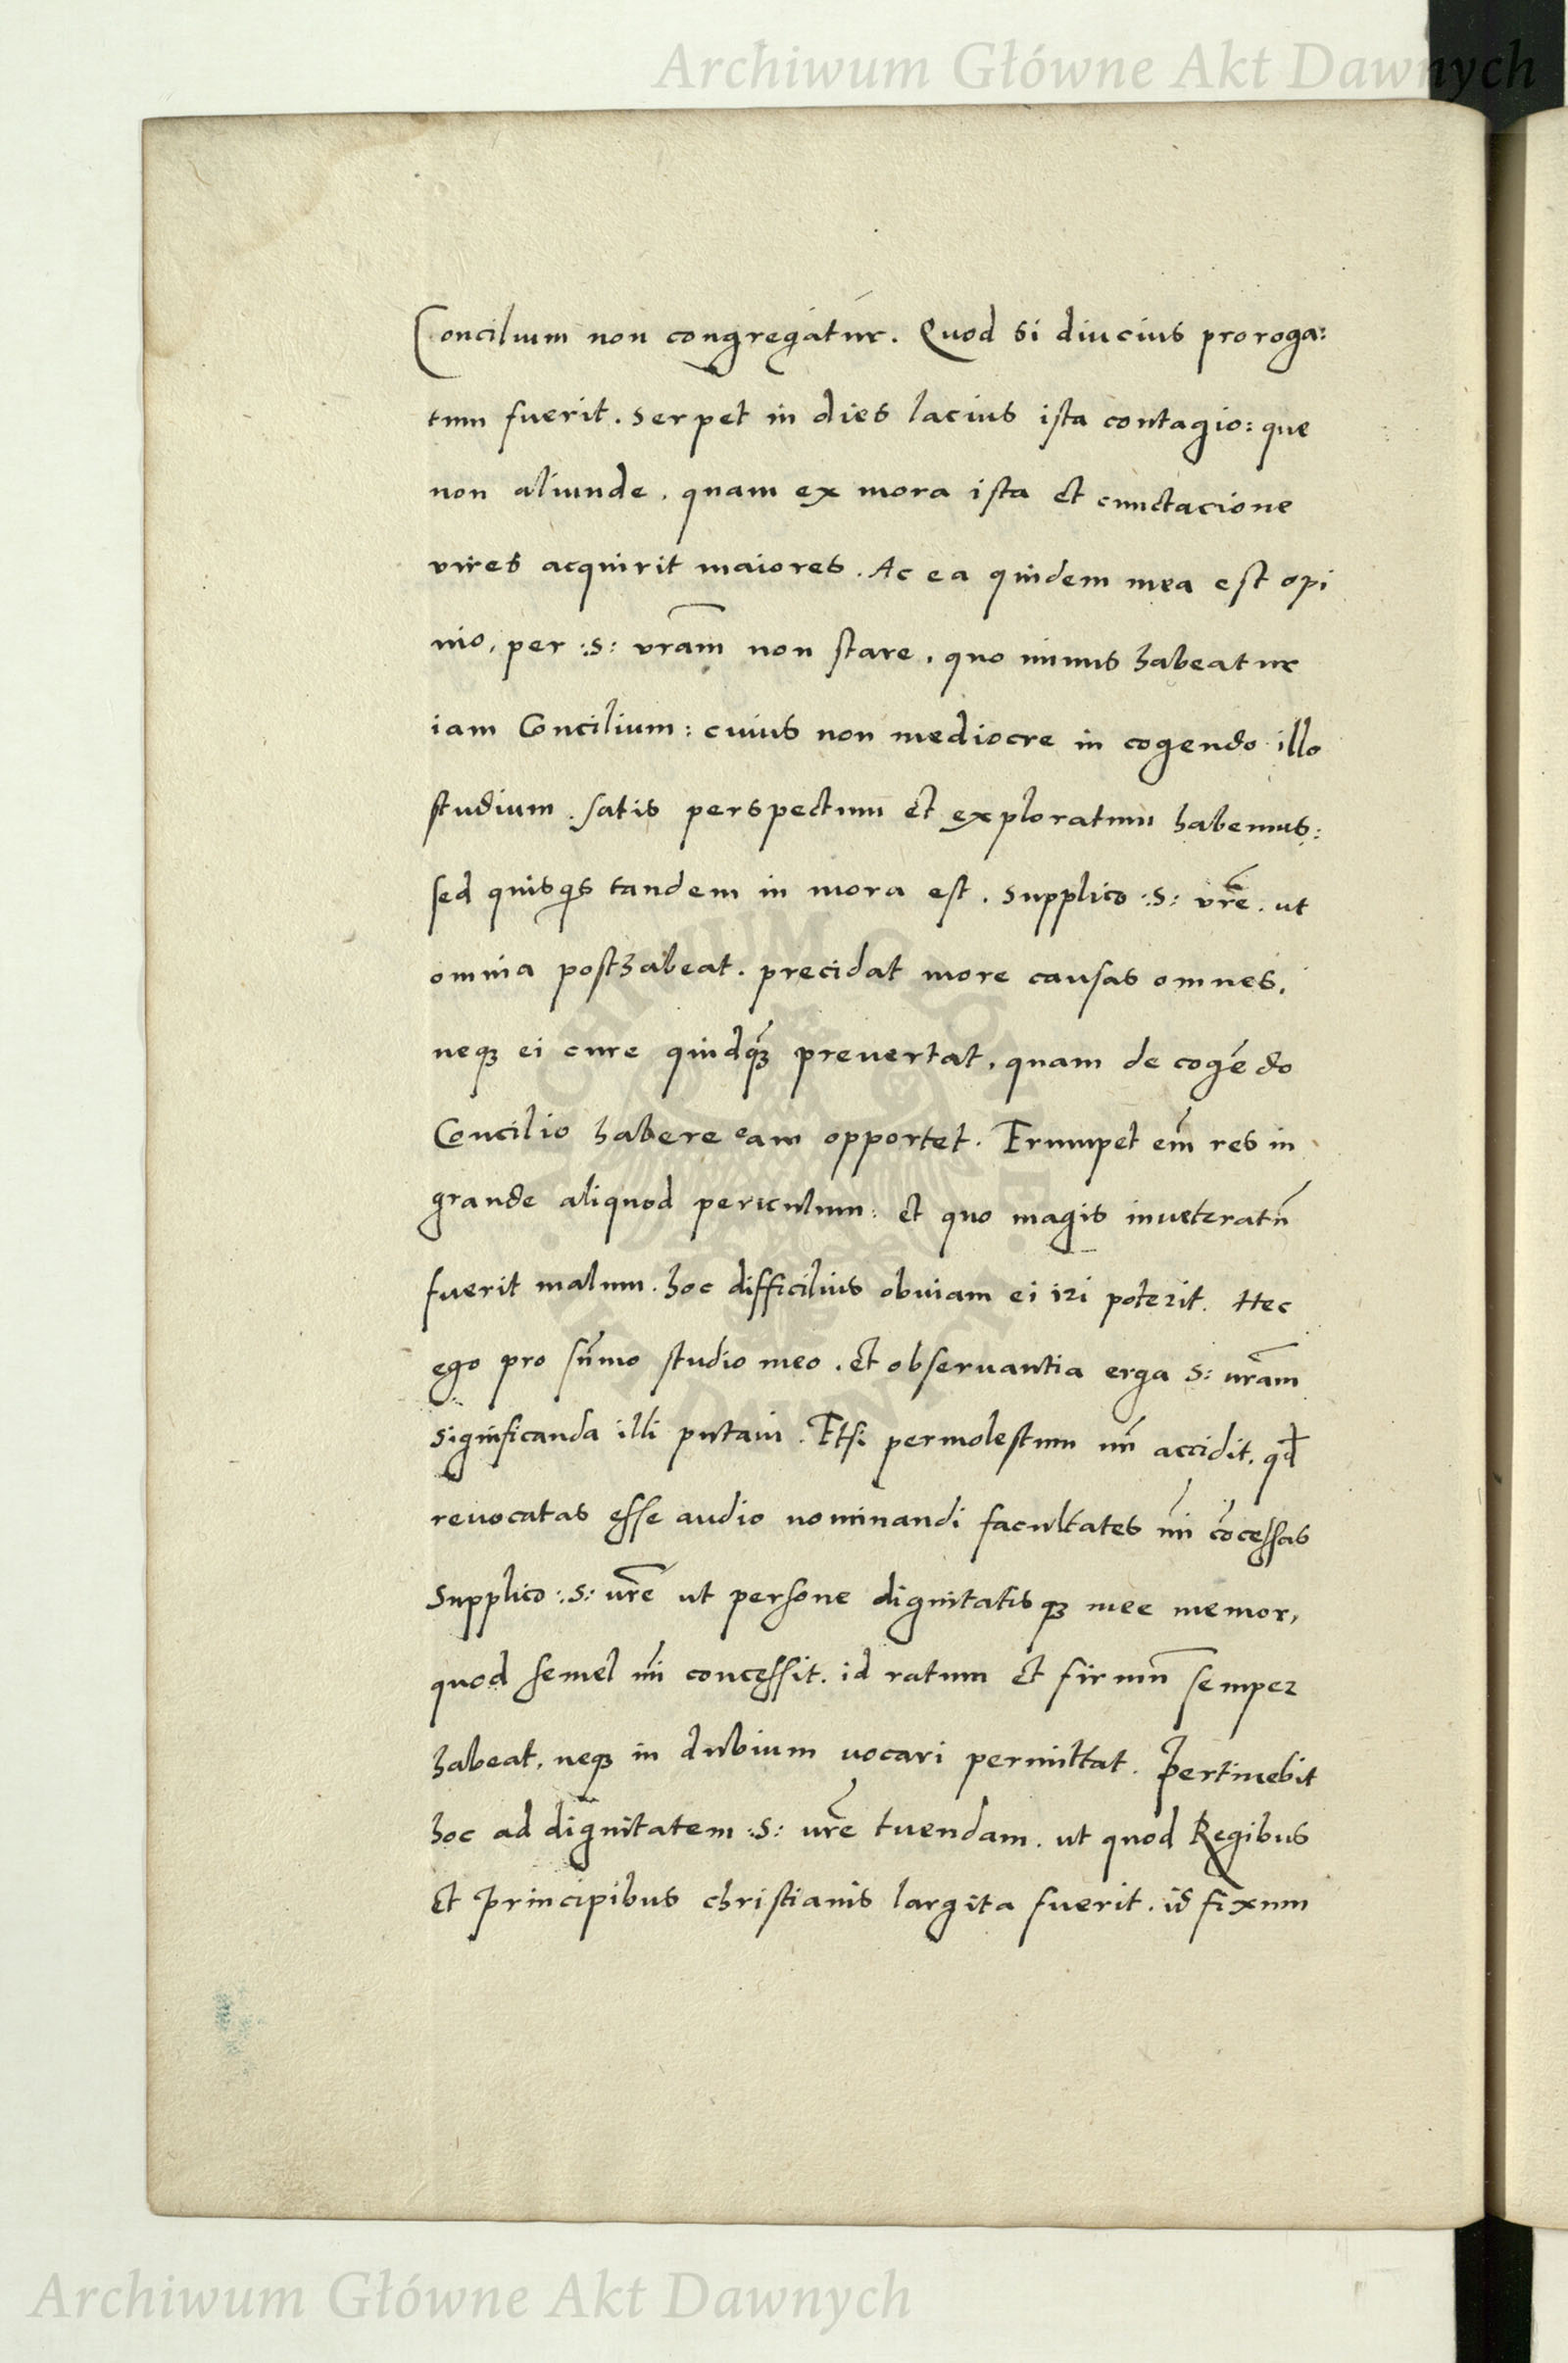 Archiwum Główne Akt Dawnych
Concilium non congregatur. Quod si diucius proroga:
tum fuerit. serpet in dies lacius ista contagio: que
non aliunde. quam ex mora ista et cunctacione
vires acquirit maiores. Ac ea quidem mea est opi
nio, per :S: vr̃am non stare. quo minus habeatur
iam Concilium: cuius non mediocre in cogendo illo
studium. satis perspectum et exploratum habemus:
sed quisqis tandem in mora est. supplico :S: vrẽ. ut
omnia posthabeat. precidat more causas omnes.
neqꝫ ei cure quidqꝫ̃ prevertat. quam de cogẽdo
Concilio habere eam opportet. Erumpet em̃ res in
grande aliquod periculum: et quo magis inveteratũ
fuerit malum. hoc difficilius obviam ei iri poterit. Hec
ego pro sũmo studio meo. et observantia erga S: vr̃am
significanda illi putavi. Etsi permolestum mi̅ accidit. qđ
revocatas esse audio nominandi facultates mi̅ cõcessas
Supplico :S: vrẽ ut persone dignitatisqꝫ mee memor,
quod semel mi̅ concessit. id ratum et firmũ semper
habeat. neqꝫ in dubium vocari permittat. Pertinebit
hoc ad dignitatem :S: vrẽ tuendam. ut quod Regibus
et Principibus christianis largita fuerit. id fixum
Archiwum Główne Akt Dawnych